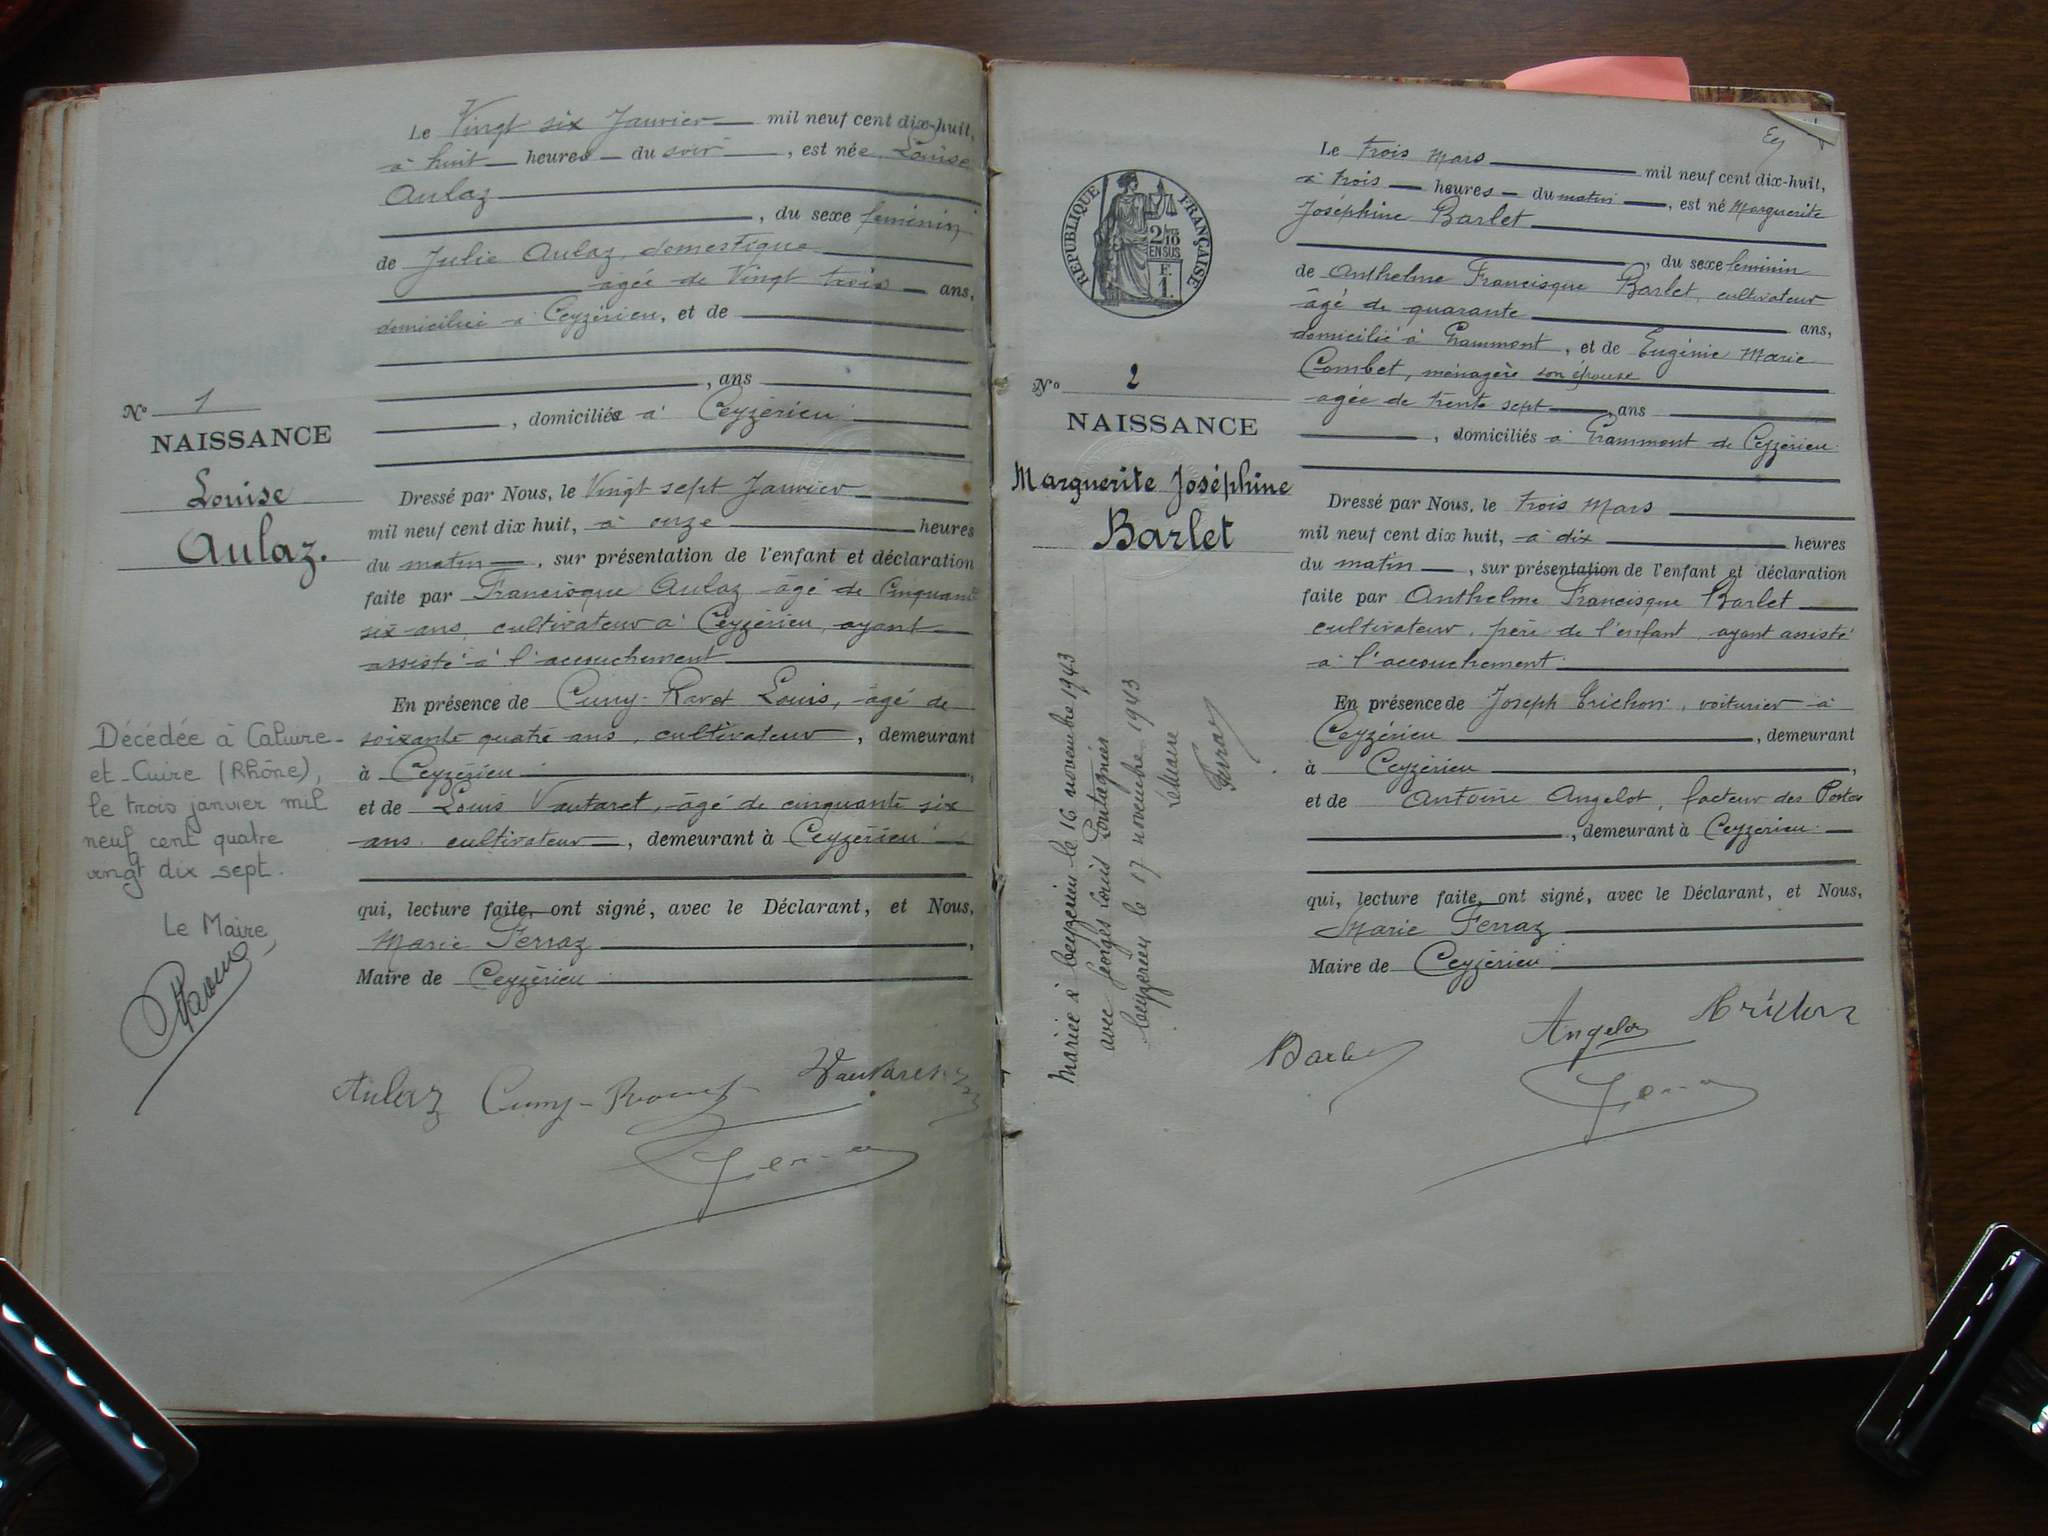 Le Vingt six Janvier mil neuf cent dix-huit,
à huit heures du soir, est née Louise
Aulaz
, du sexe feminin
de Julie Aulaz, domestique
agée de Vingt trois ans,
domiciliée à Ceyzérieu, et de
, ans
, domiciliée à Ceyzérieu
N° 1
NAISSANCE
Louise
Aulaz.
Dressé par Nous, le Vingt sept Janvier
mil neuf cent dix huit, à onze heures
du matin, sur présentation de l'enfant et déclaration
faite par Francisque Aulaz âgé de Cinquante
six ans, cultivateur à Ceyzérieu, ayant
assisté à l'accouchement
En présence de Cuny-Ravet Louis, âgé de
soixante quatre ans, cultivateur, demeurant
à Ceyzérieu,
et de Louis Vautaret, âgé de cinquante six
ans, cultivateur, demeurant à Ceyzérieu
qui, lecture faite, ont signé, avec le Déclarant, et Nous,
Marie Ferraz,
Maire de Ceyzérieu
Décédée à Caluire-
et-Cuire (Rhône),
le trois janvier mil
neuf cent quatre
vingt dix sept.
Le Maire,
Aulaz Vautaret
RÉPUBLIQUE FRANÇAISE
2/10
EN SUS
F.
1.
N° 2
NAISSANCE
Marguerite Joséphine
Barlet
Mariée à Ceyzérieu le 16 novembre 1943
avec Georges Louis Pontagnier
Ceyzérieu le 17 novembre 1943
Le Maire
Ferraz
Le trois Mars mil neuf cent dix-huit,
à trois heures du matin, est né Marguerite
Joséphine Barlet
, du sexe feminin
de Anthelme Francisque Barlet, cultivateur
âgé de quarante ans,
domicilié à Grammont, et de Eugénie Marie
Combet, ménagère son épouse
agée de trente sept ans
, domiciliés à Grammont de Ceyzérieu
Dressé par Nous, le trois Mars
mil neuf cent dix huit, à dix heures
du matin, sur présentation de l'enfant et déclaration
faite par Anthelme Francisque Barlet
cultivateur, père de l'enfant, ayant assisté
à l'accouchement
En présence de Joseph voiturier à
Ceyzérieu, demeurant
à Ceyzérieu,
et de Antoine Angelot, facteur des Postes
, demeurant à Ceyzérieu
qui, lecture faite, ont signé, avec le Déclarant, et Nous,
Marie Ferraz
Maire de Ceyzérieu
Barlet Angelot